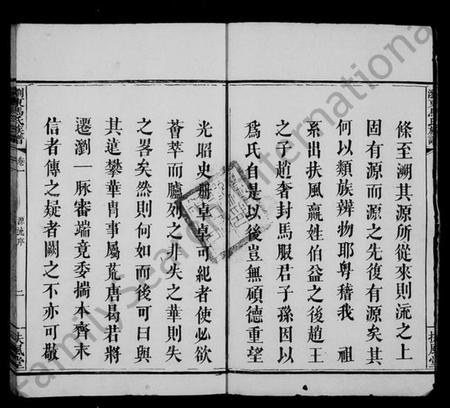 條至溯其源所從來則流之上
固有源而源之先後有源其
何以類族辨物耶粵稽我 祖
系出扶風嬴姓伯益之後趙王
之子趙奢封馬服君子孫因以
爲氏自是以後豈無碩德重望
光昭史冊卓卓可紀者使必欲
薈萃而臚列之非失之華則失
之畧矣然則何如而後可曰與
其遠攀華胄事屬荒唐曷若將
遷瀏一脉審端竟委揣本齊末
信者傳之疑者闕之不亦可歟
瀏東馬氏族譜 卷一 源流序 二 扶風堂
FamilySearch International